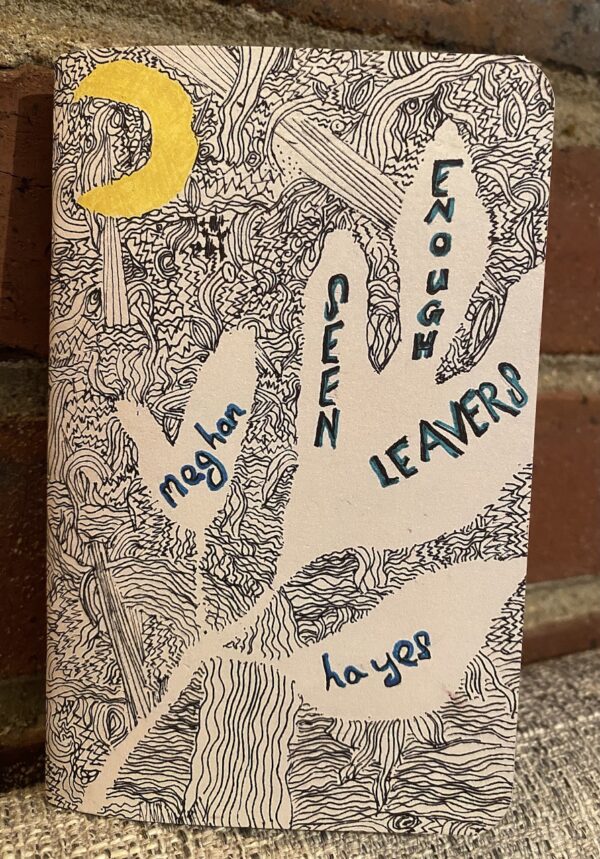 SEEN
ENOUGH
LEAVERS
meghan
hayes